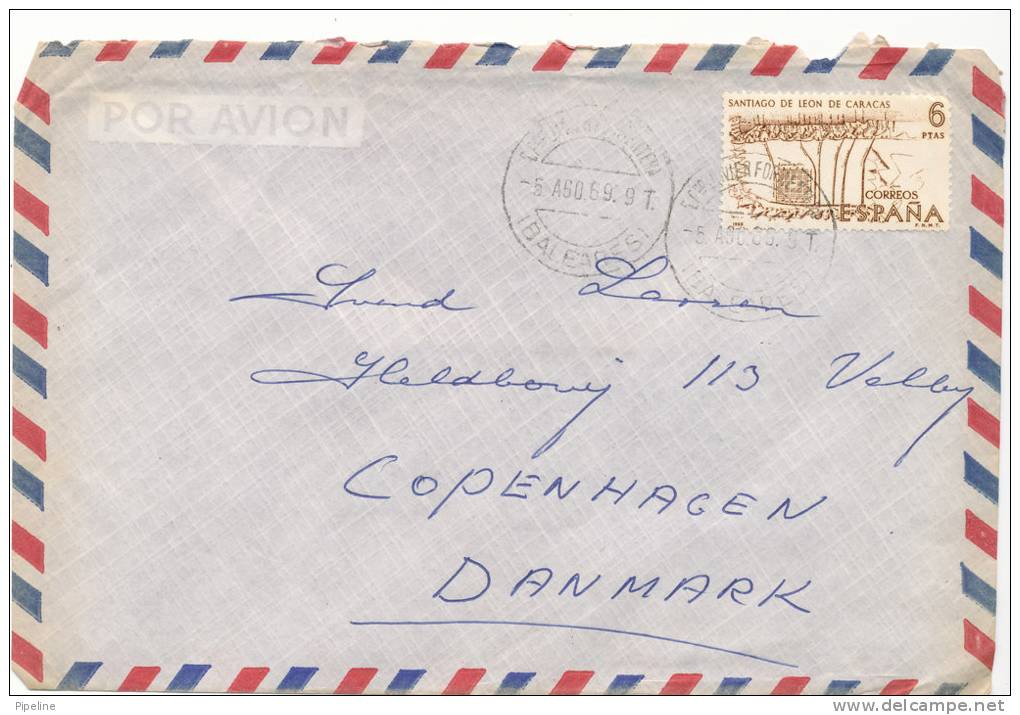 POR AVION
SANTIAGO DE LEON DE CARACAS
6
PTAS
CORREOS
ESPAÑA
F.N.M.T.
-5 AGO.69. 9 T.
(BALEARES)
JAVIER FORMEN
-5 AGO.69. 9 T.
Svend Larsen
113 Valby
COPENHAGEN
DANMARK
Pipeline
www.delcampe.net